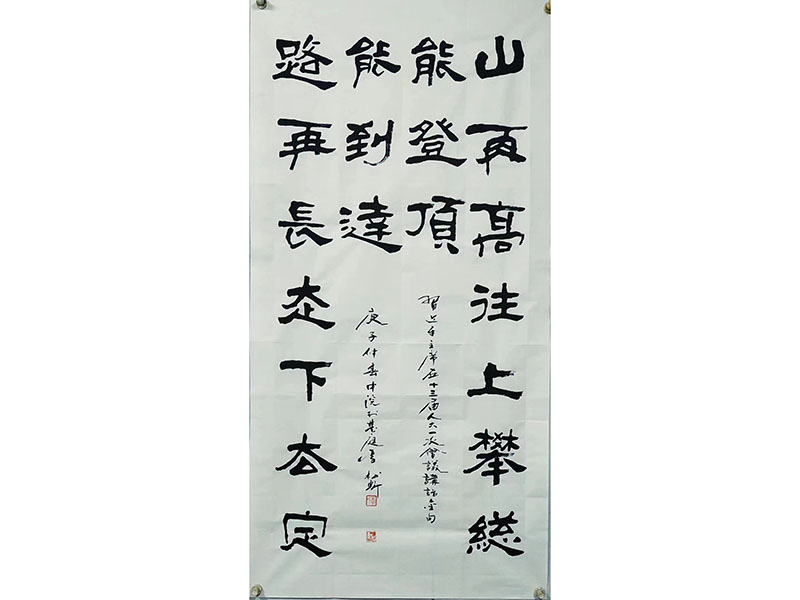 山再高往上攀總
能登頂
習近平主席在十三屆人大一次會議講話金句
路再長走下去定
能到達
庚子仲春